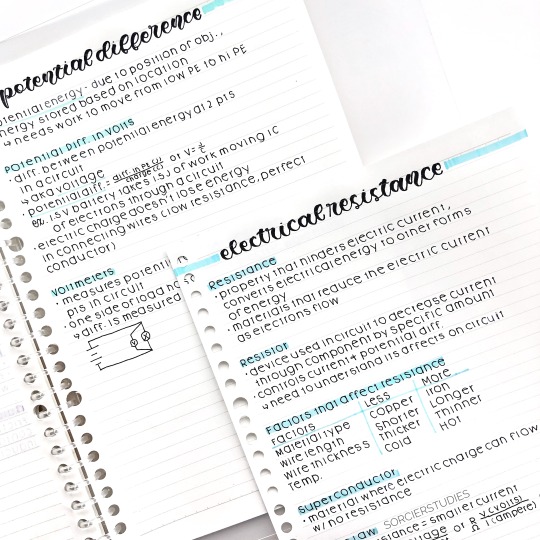 potential difference
potential energy- due to position of obj.,
energy stored based on location
↳ needs work to move from low PE to hi PE
Potential Diff. in Volts
• diff. between potential energy at 2 pts
in a circuit
↳ aka voltage
• potential diff. = diff. in PE (J) / charge (C) or V = E/C
ex. 1.5 V battery takes 1.5 J of work moving 1C
of electrons through a circuit
• electric charge doesn't lose energy
in connecting wires (low resistance, perfect
conductor)
Voltmeters
• measures potenti
pts in circuit
• one side of load ho
↳ diff. is measured
V
electrical resistance
Resistance
• property that hinders electric current,
converts electrical energy to other forms
of energy
• materials that reduce the electric current
as electrons flow
Resistor
• device used in circuit to decrease current
through component by specific amount
• controls current + potential diff.
↳ need to understand its affects on circuit
Factors that affect resistance
Factors Less More
Material type copper Iron
wire length shorter Longer
wire thickness Thicker Thinner
Temp. Cold Hot
Superconductor
• material where electric charge can flow
w/ no resistance
SORCIERSTUDIES
Law
resistance = smaller current
or R/Ω V (volts) / I (ampere)